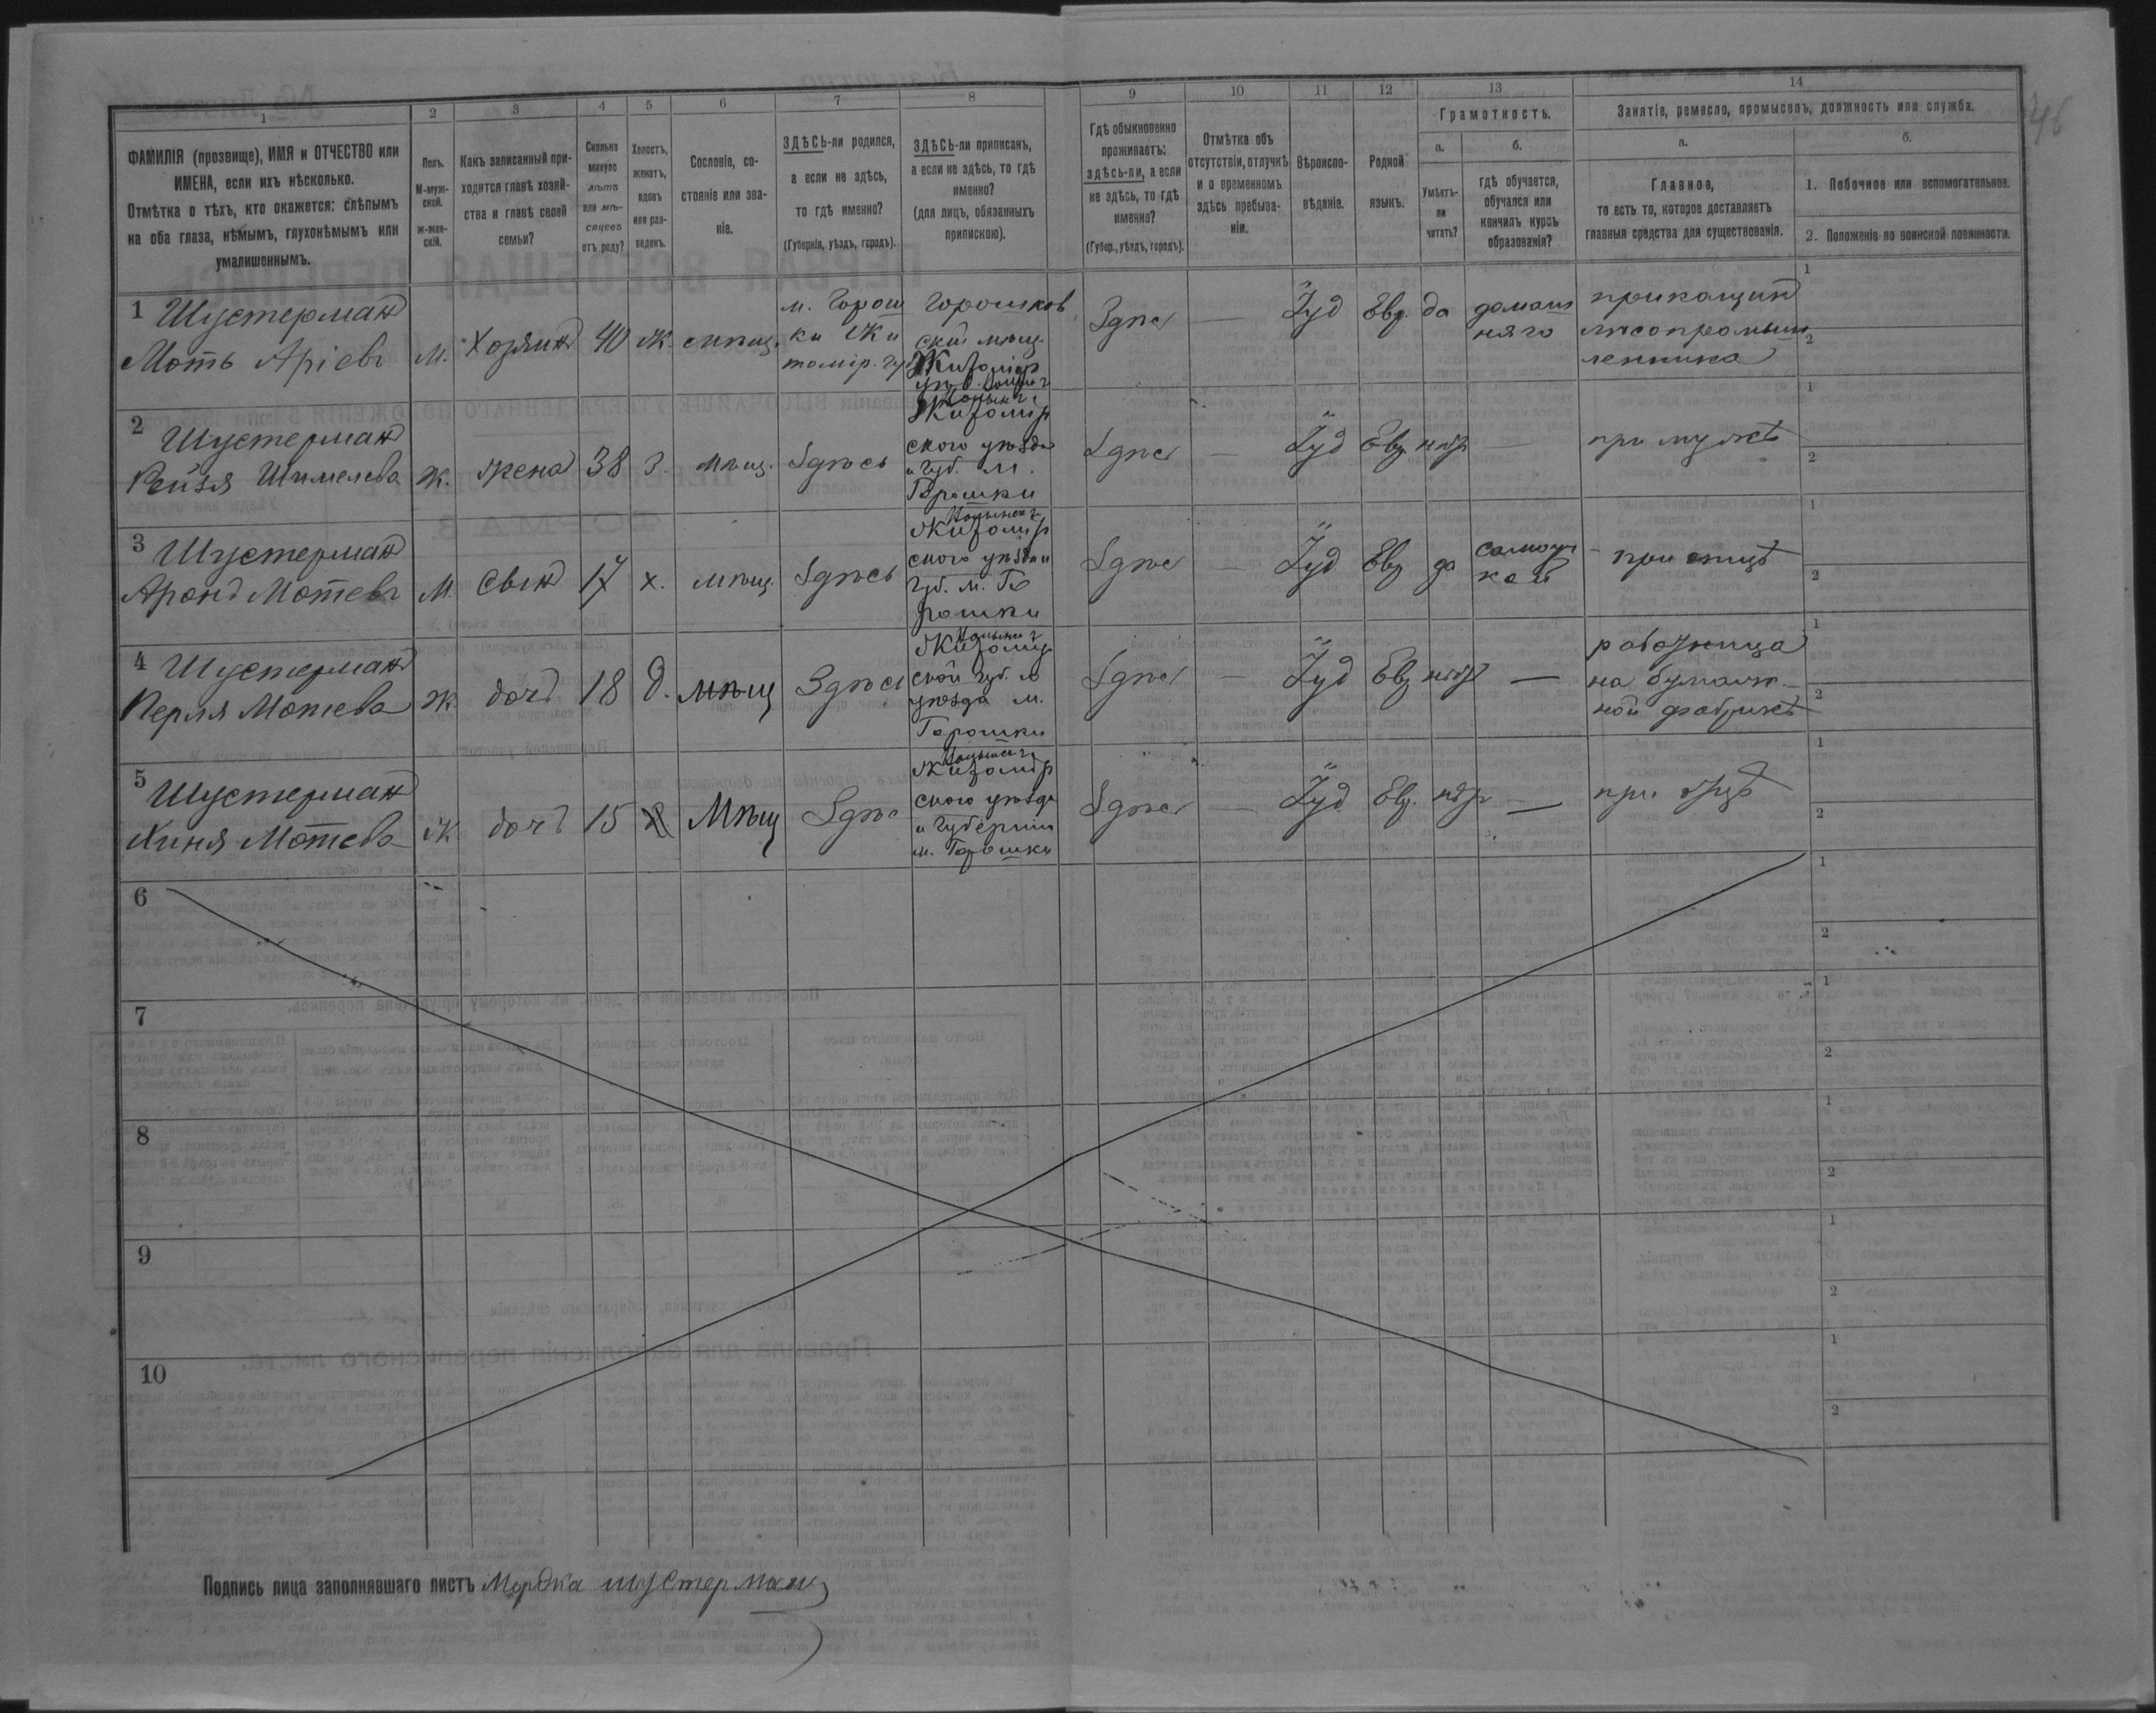 46
1 2 3 4 5 6 7 8 9 10 11 12 13 14
ФАМИЛІЯ (прозвище), ИМЯ и ОТЧЕСТВО или ИМЕНА, если ихъ нѣсколько.
Отмѣтка о тѣхъ, кто окажется: слѣпымъ на оба глаза, нѣмымъ, глухонѣмымъ или умалишеннымъ.
Полъ. М-мужской. ж-женскій.
Какъ записанный приходится главѣ хозяйства и главѣ своей семьи?
Сколько минуло лѣтъ или мѣсяцевъ отъ роду?
Холостъ, женатъ, вдовъ или разведенъ.
Сословіе, состояніе или званіе.
ЗДѢСЬ-ли родился, а если не здѣсь, то гдѣ именно?
(Губернія, уѣздъ, городъ).
ЗДѢСЬ-ли приписанъ, а если не здѣсь, то гдѣ именно?
(для лицъ, обязанныхъ припискою).
Гдѣ обыкновенно проживаетъ: здѣсь-ли, а если не здѣсь, то гдѣ именно?
(Губер., уѣздъ, городъ).
Отмѣтка объ отсутствіи, отлучкѣ и о временномъ здѣсь пребываніи.
Вѣроисповѣданіе.
Родной языкъ.
Грамотность.
а. Умѣетъ-ли читать?
б. гдѣ обучается, обучался или кончилъ курсъ образованія?
Занятіе, ремесло, промыселъ, должность или служба.
а. Главное, то есть то, которое доставляетъ главныя средства для существованія.
б.
1. Побочное или вспомогательное.
2. Положеніе по воинской повинности.
1 Шустерманъ Моть Аріевъ М. Хозяинъ 40 ж. мѣщ. м. Горошки Житомір. губ. Горошковскій мѣщ. Житомір Здѣсь — Іуд Евр. да домашняго прикащикъ лѣсопромышленника 1 2
2 Шустерманъ Рейзя Шимелева ж. жена 38 З. мѣщ. Здѣсь Волынск. Житомірского уѣзда и губ. м. Горошки Здѣсь — Іуд Евр нѣтъ — при мужѣ 1 2
3 Шустерманъ Аронъ Мотевъ М. Сынъ 17 х. мѣщ. Здѣсь Волынской Житомірского уѣзда и губ. м. Горошки Здѣсь — Іуд Евр да самоучкой при отцѣ 1 2
4 Шустерманъ Перля Мотева ж дочь 18 д. мѣщ Здѣсь Волынск Житомірской губ. и уѣзда м. Горошки Здѣсь — Іуд Евр нѣтъ — работница на бумажной фабрикѣ 1 2
5 Шустерманъ Хиня Мотева ж дочь 15 Мѣщ Здѣсь Волынской Житомірского уѣзда и губерніи м. Горошки Здѣсь — Іуд Евр. нѣтъ — при отцѣ 1 2
6 1 2
7 1 2
8 1 2
9 1 2
10 1 2
Подпись лица заполнявшаго листъ Мордка шустерман